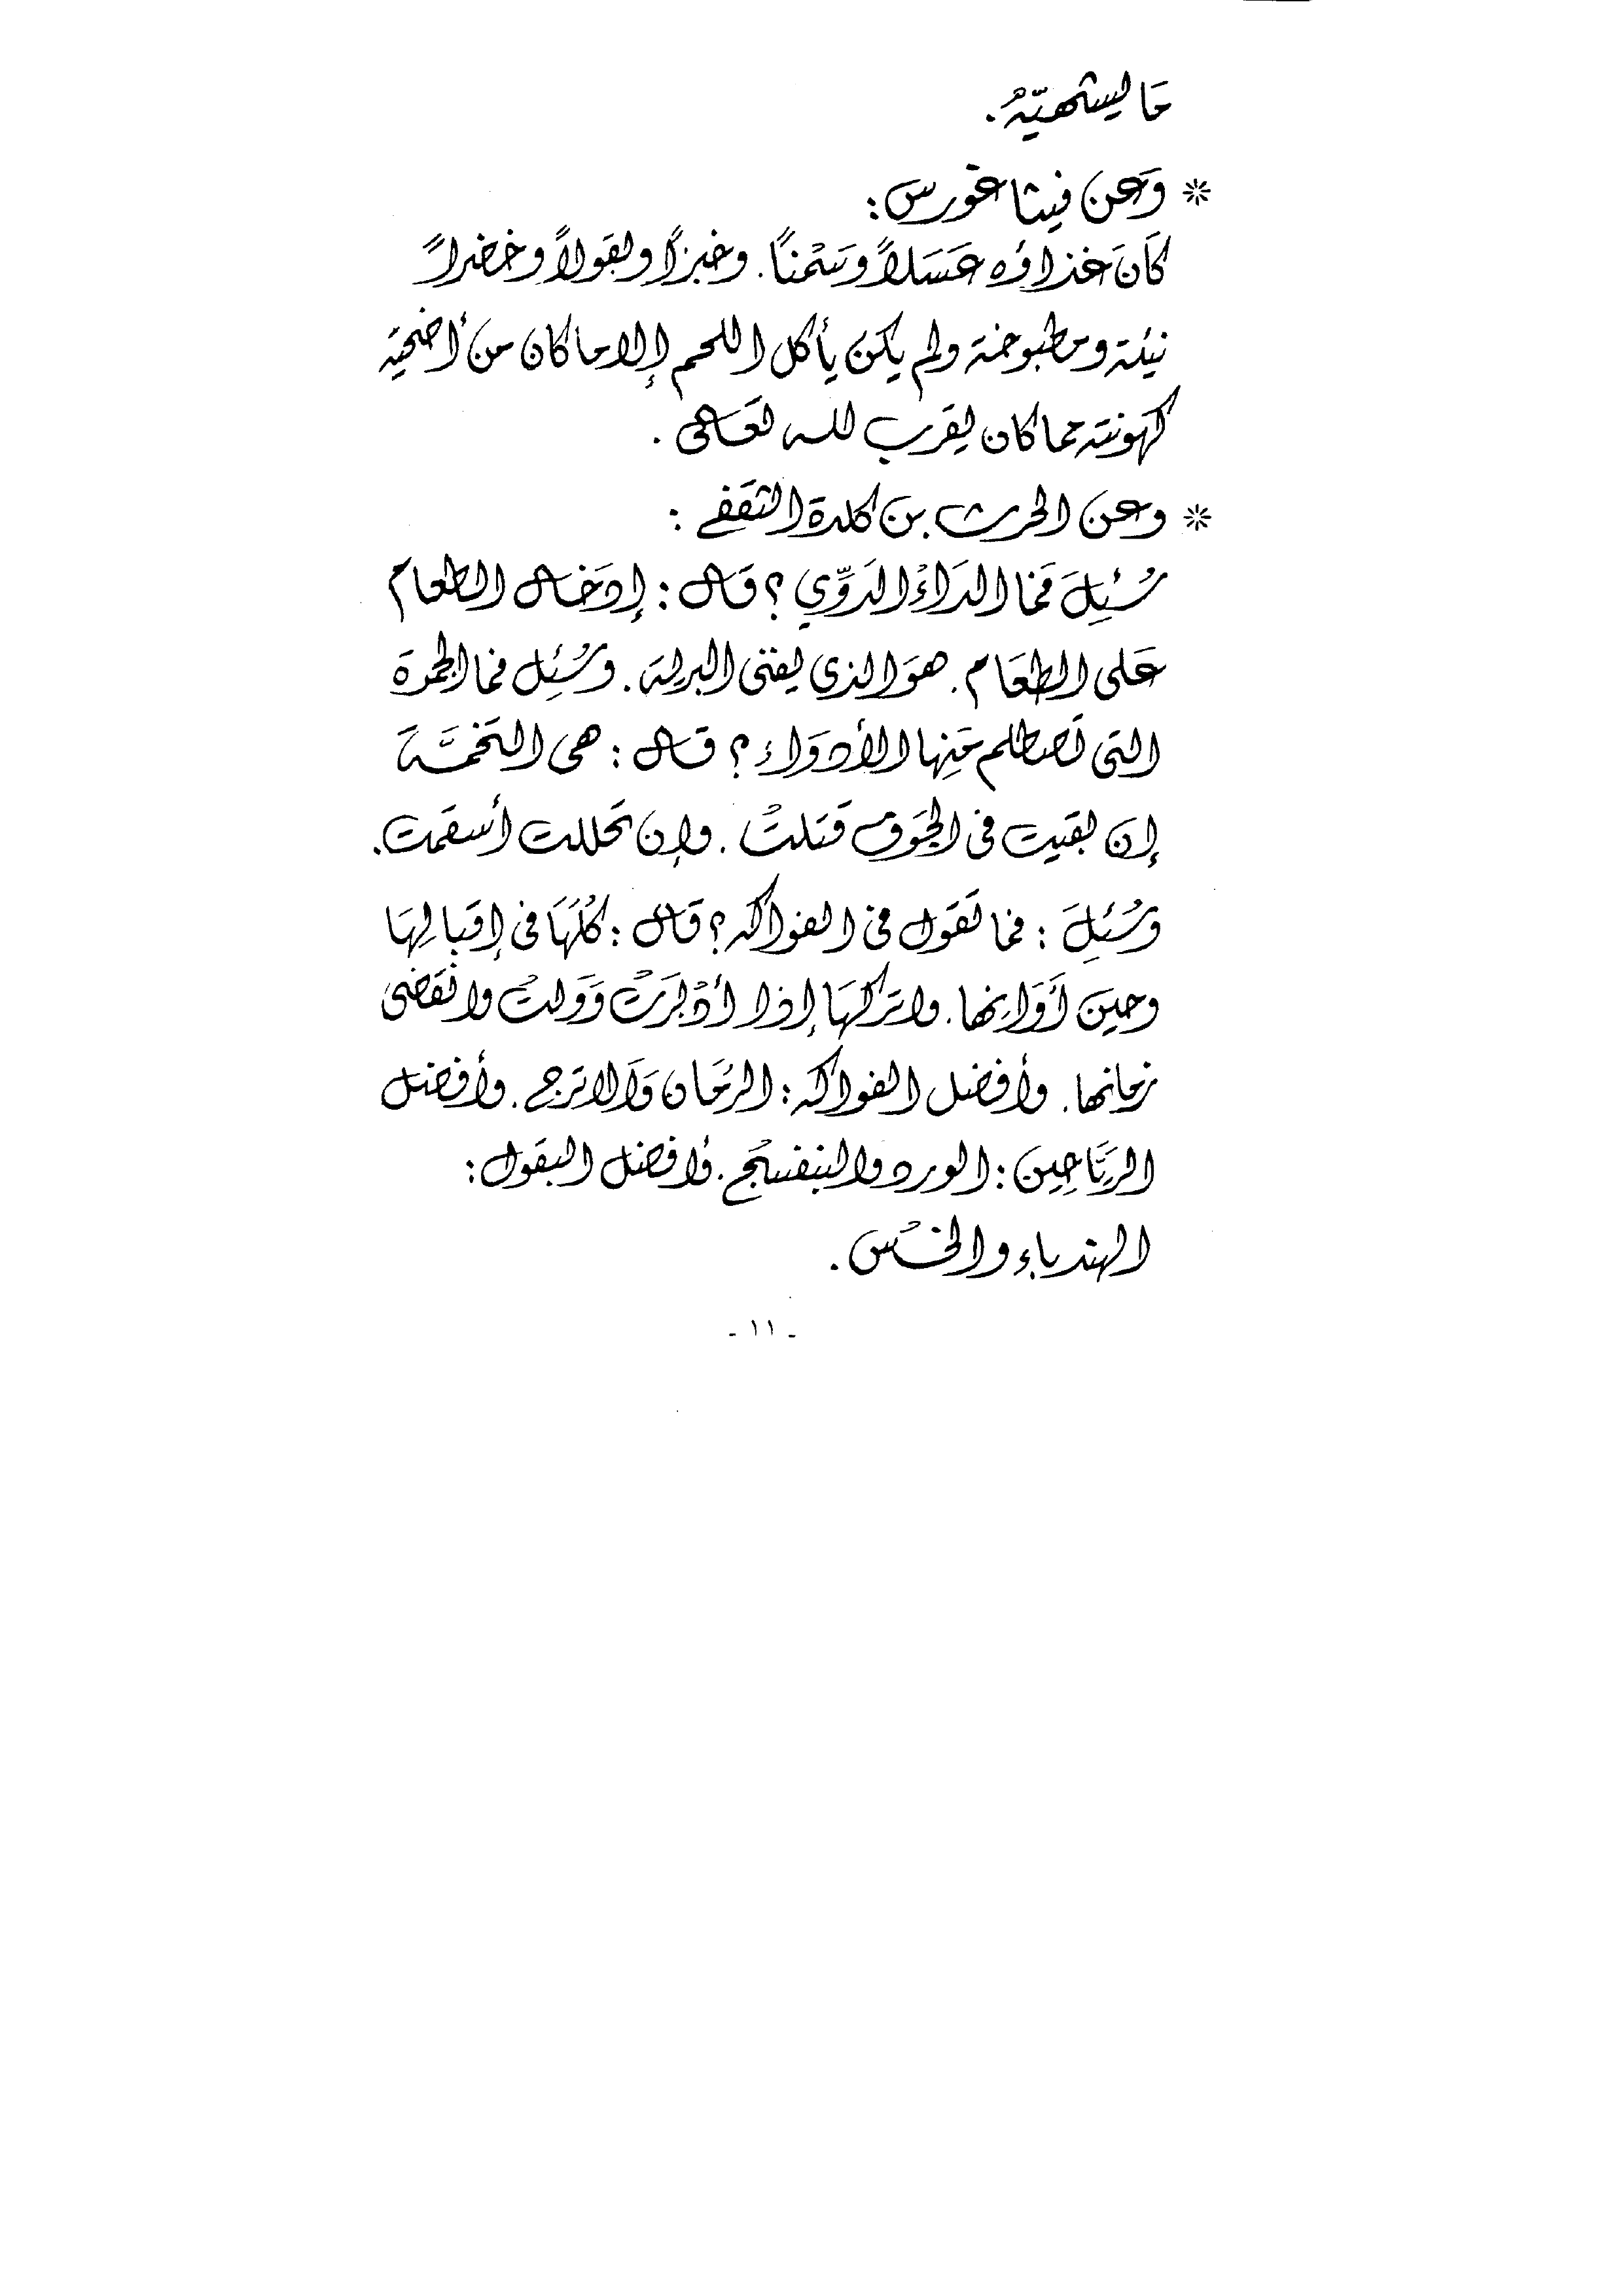 مَا يشتهيّهُ.
* وَعن فيثاغورس:
كَانَ غذاؤه عَسَلاً وسَمْناً. وخبزاً وبقولاً وخضراً
نيئة ومطبوخة ولم يكن يأكل اللحم إلا ما كان من أضحية
كهونته مما كان يقرب لله تعَالى.
* وعن الحرث بن كلدة الثقفي:
سُئِلَ فما الدَاءُ الدَوِّي؟ قَال: إدخَال الطعام
عَلى الطعَام. هوَ الذي يفنى البرية. وسُئِل فما الجمرة
التى تصطلم مِنها الأدوَاء؟ قال: هى التخمَّة
إن بقيت فى الجَوف قتلتْ. وإن تحللت أسقمت.
وسُئِلَ: فما تقول في الفواكه؟ قال: كُلهَا فى إقبالِهَا
وحينَ أوَانِها. واتركهَا إذا أدْبرَتْ وَولتْ وانقَضى
زمانها. وأفضل الفواكه: الرُمَان وَالاترج. وأفضل
الريَّاحِين: الورد والبنفسَج. وأفضل البقول:
الهندباء والخسُ.
- ١١ -